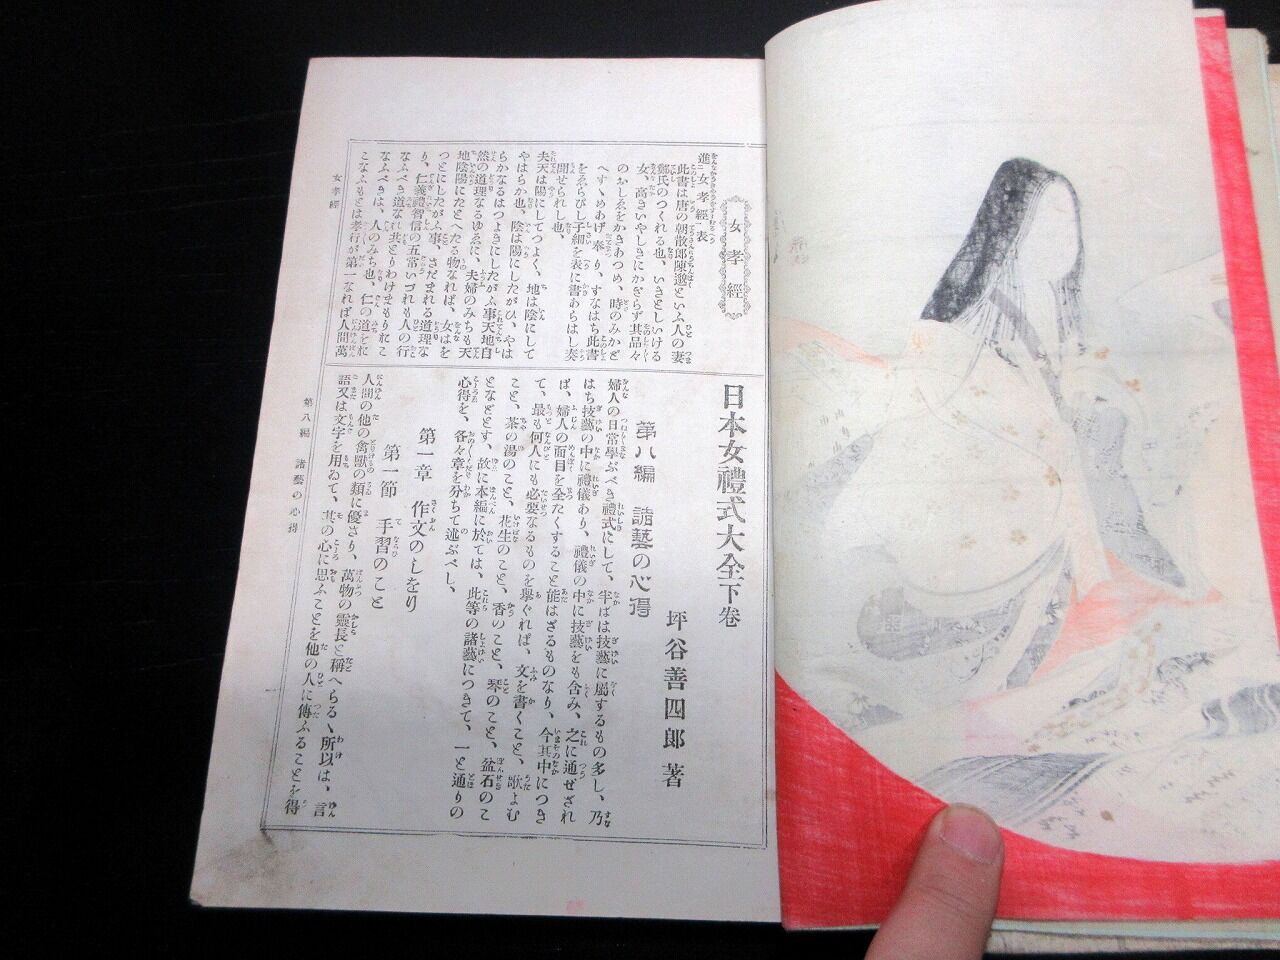 女孝經
進女孝經表
此書は唐の朝散郎陳邈といふ人の妻
鄭氏のつくれる也、いきとしいける
女、高きいやしきにかぎらず其品々
のおしゑをかきあつめ、時のみかど
へすゝめあげ奉り、すなはち此書
をゑらびし子細を表に書あらはし奏
聞せられし也、
夫天は陽にしてつよく、地は陰にして
やはらか也、陰は陽にしたがひ、やは
らかなるはつよきにしたがふ事天地自
然の道理なるゆゑに、夫婦のみちも天
地陰陽にたとへたる物なれば、女はを
つとにしたがふ事、さだまれる道理な
り、仁義禮智信の五常いづれも人の行
なふべき道なれ共とりわけまもりおこ
なふべきは、人のみち也、仁の道をお
こなふもとは孝行が第一なれば人間萬
女孝經
日本女禮式大全下卷
坪谷善四郎著
第八編 諸藝の心得
婦人の日常學ぶべき禮式にして、半ばは技藝に屬するもの多し、乃
はち技藝の中に禮儀あり、禮儀の中に技藝をも含み、之に通ぜざれ
ば、婦人の面目を全たくすること能はざるものなり、今其中につき
て、最も何人にも必要なるものを擧ぐれば、文を書くこと、歌よむ
こと、茶の湯のこと、花生のこと、香のこと、琴のこと、盆石のこ
となどとす、故に本編に於ては、此等の諸藝につきて、一と通りの
心得を、各々章を分ちて述ぶべし、
第一章 作文のしをり
第一節 手習のこと
人間の他の禽獸の類に優さり、萬物の靈長と稱へらるゝ所以は、言
語又は文字を用ゐて、其の心に思ふことを他の人に傳ふることを得
第八編 諸藝の心得